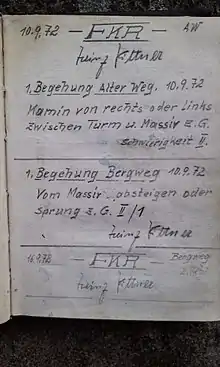 10.9.72 — FKR — AW
Heinz Kittner
1. Begehung Alter Weg, 10.9.72
Kamin von rechts oder links
zwischen Turm u. Massiv z. G.
Schwierigkeit II.
1. Begehung Bergweg 10.9.72
Vom Massiv absteigen oder
Sprung z. G. II/1
Heinz Kittner
— FKR — Bergweg
Heinz Kittner